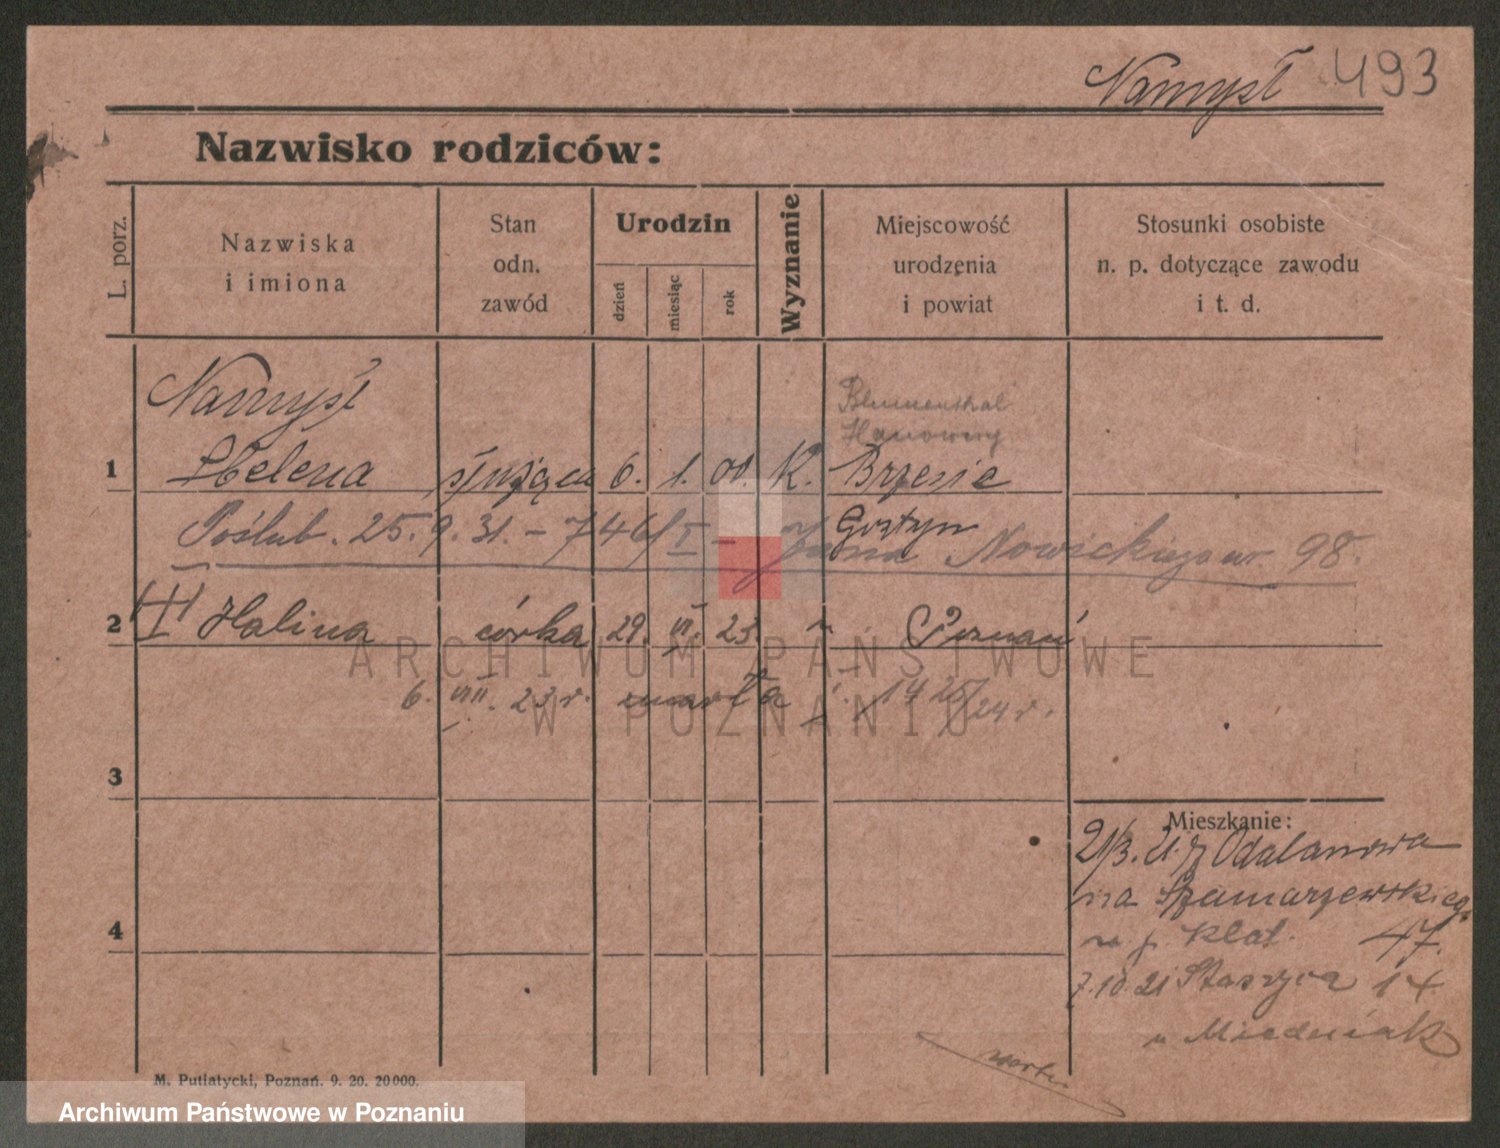 Namysł 493
Nazwisko rodziców:
L. porz.
Nazwiska
i imiona
Stan
odn.
zawód
Urodzin
dzień
miesiąc
rok
Wyznanie
Miejscowość
urodzenia
i powiat
Stosunki osobiste
n. p. dotyczące zawodu
i t. d.
Namysł
Blumenthal
Hanower
1 Helena służąca 6. 1. 00. K. Brzezie
Gostyn
Poślub. 25.9.31. – 746/I – Jana Nowickiego ur. 98.
2 Halina córka 29. VI. 23. " Poznań
6. VIII. 23 r. zmarła 1425/24 r.
3
Mieszkanie:
21/3. 21. z Odolanowa
na Szamarzewskiego
4
u p. Klat. 47.
7.10.21 Staszyca 14
u Miedniak
M. Putiatycki, Poznań. 9. 20. 20000.
ARCHIWUM PAŃSTWOWE
W POZNANIU
Archiwum Państwowe w Poznaniu